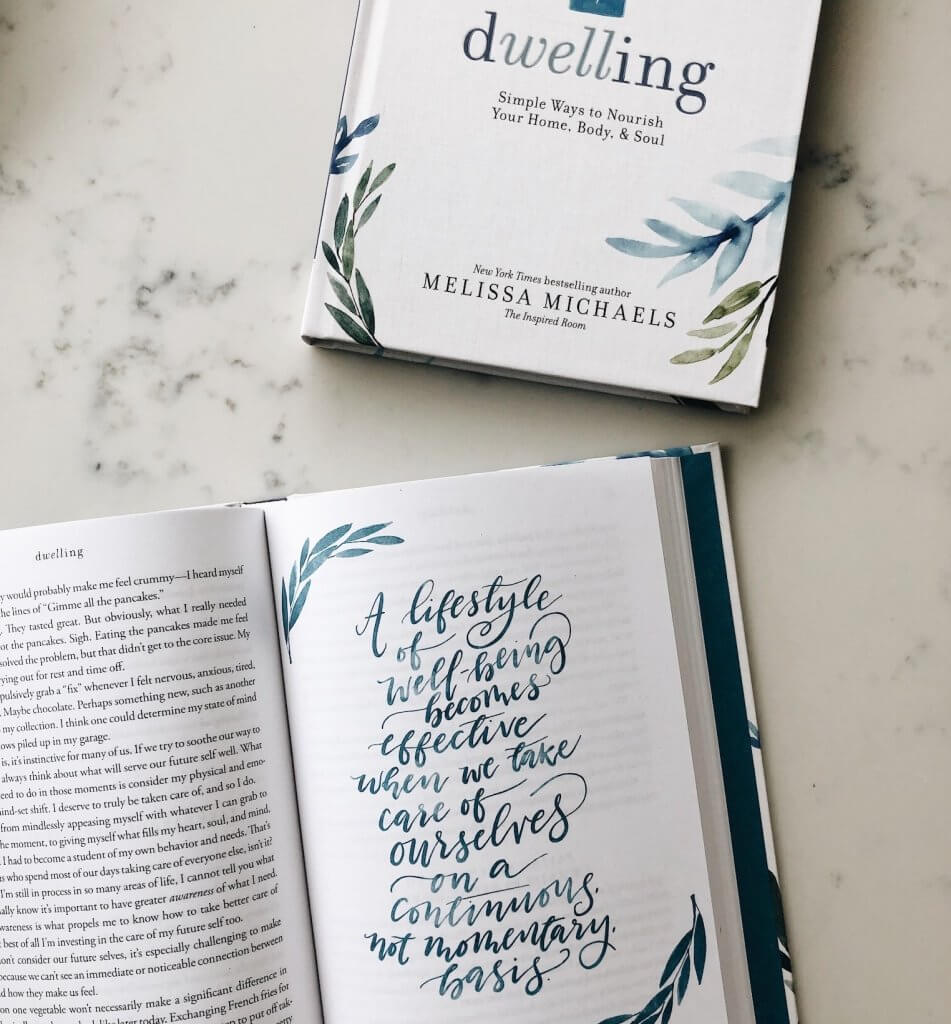 dwelling
Simple Ways to Nourish
Your Home, Body, & Soul
New York Times bestselling author
MELISSA MICHAELS
The Inspired Room
dwelling
y would probably make me feel crummy—I heard myself
he lines of “Gimme all the pancakes.”
They tasted great. But obviously, what I really needed
ot the pancakes. Sigh. Eating the pancakes made me feel
solved the problem, but that didn't get to the core issue. My
ying out for rest and time off.
pulsively grab a “fix” whenever I felt nervous, anxious, tired.
Maybe chocolate. Perhaps something new, such as another
my collection. I think one could determine my state of mind
ows piled up in my garage.
is, it's instinctive for many of us. If we try to soothe our way to
always think about what will serve our future self well. What
eed to do in those moments is consider my physical and emo-
mind-set shift. I deserve to truly be taken care of, and so I do.
from mindlessly appeasing myself with whatever I can grab to
he moment, to giving myself what fills my heart, soul, and mind.
I had to become a student of my own behavior and needs. That's
s who spend most of our days taking care of everyone else, isn't it?
I'm still in process in so many areas of life, I cannot tell you what
ally know it's important to have greater awareness of what I need.
wareness is what propels me to know how to take better care of
best of all I'm investing in the care of my future self too.
on't consider our future selves, it's especially challenging to make
because we can't see an immediate or noticeable connection between
d how they make us feel.
on one vegetable won't necessarily make a significant difference in
later today. Exchanging French fries for
to put off tak-
A lifestyle
of
well-being
becomes
effective
when we take
care of
ourselves
on a
continuous,
not momentary,
basis.